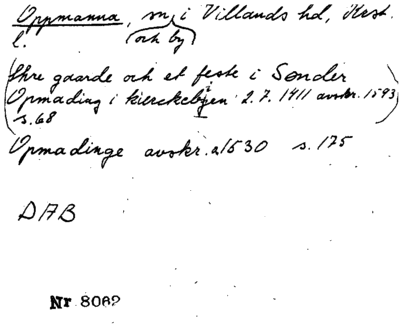 Oppmanna, sn, i Villands hd, Krist.
l. (och by)
(Thre gaarde och et feste i Sønder
Opmading i kierckebyen 2.7.1411 avskr. 1593
s. 68)
Opmadinge avskr. a1530 s. 175
DAB
Nr 8062